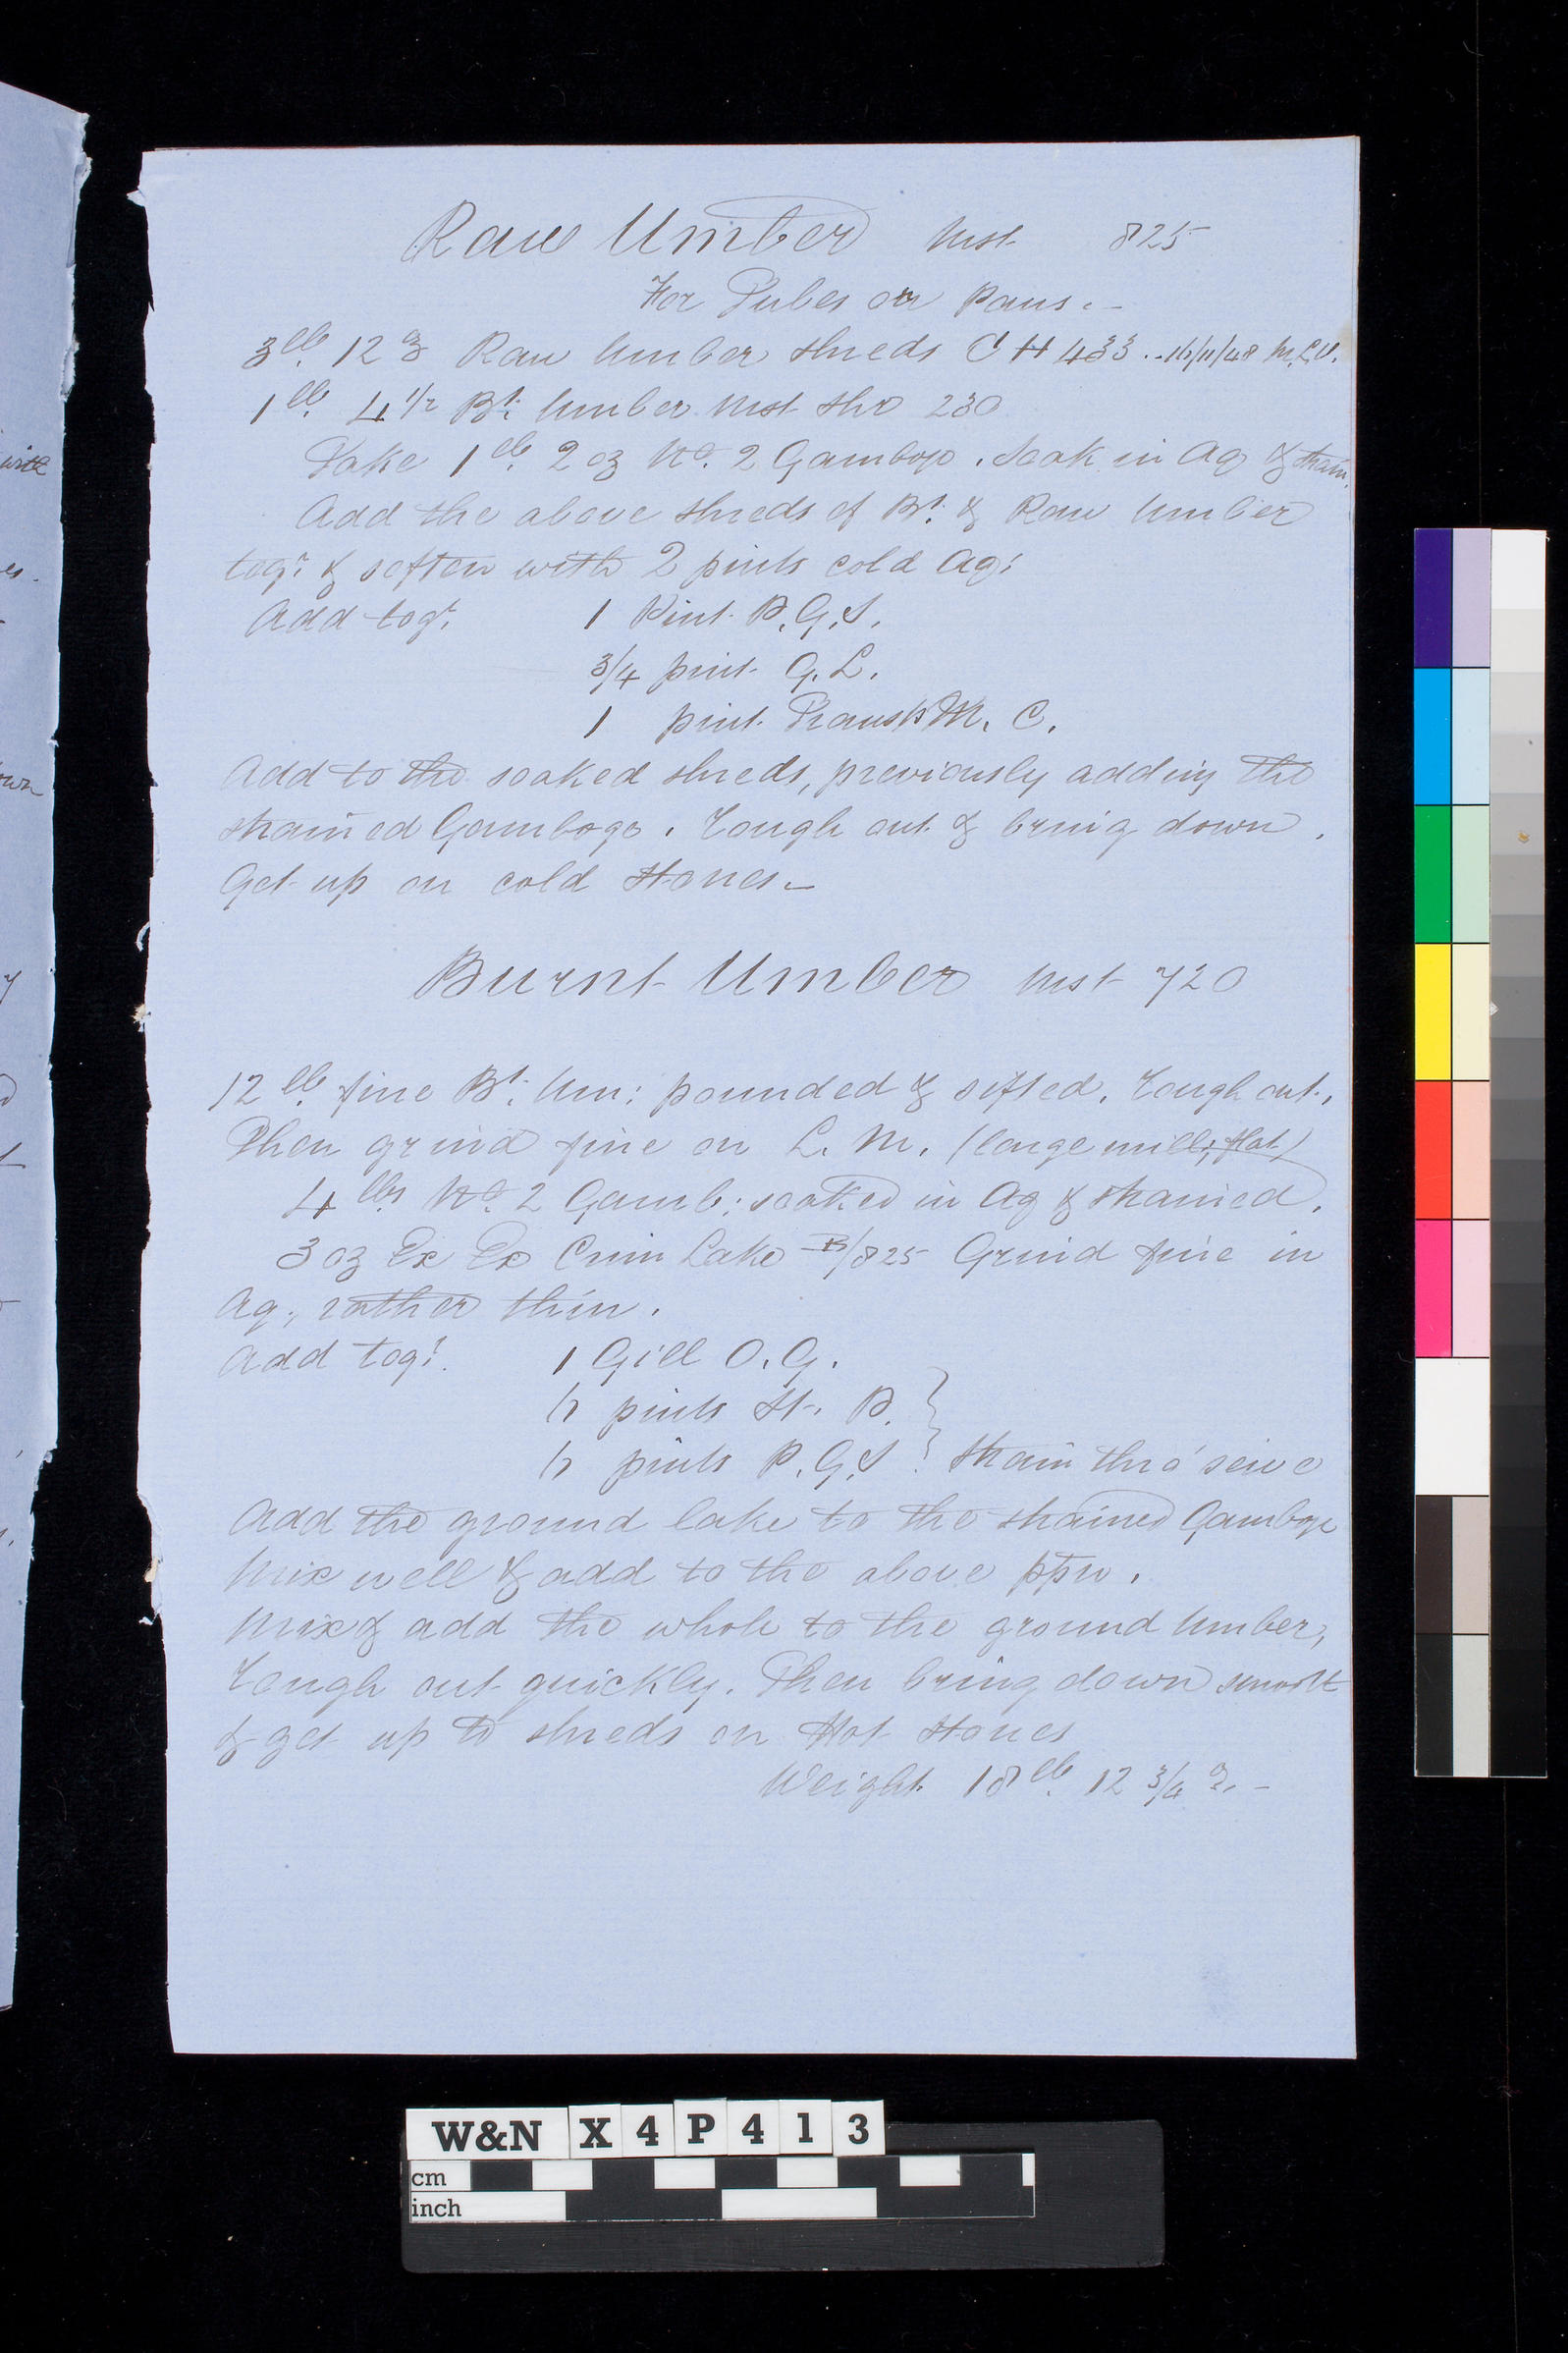 Raw Umber Mst 825
For Tubes or Pans.-
3 lb. 12 oz Raw Umber shreds C H 433 .. 16/11/48 M.L.V.
1 lb. 4 1/2 Bt. Umber Mst shr 230
Take 1 lb. 2 oz No. 2 Gamboge. Soak in Aq & strain.
Add the above shreds of Bt. & Raw Umber
togr. & soften with 2 pints cold Aq:
Add togr. 1 Pint P.G.S.
3/4 pint G.L.
1 pint M. C.
Add to the soaked shreds, previously adding the
strained Gamboge. Tough out & bring down.
Get up on cold Stones.-
Burnt Umber Mst 720
12 lb. fine Bt. Um: pounded & sifted. Tough out.,
Then grind fine on L. M. (large mill; flat)
4 lbs No. 2 Gamb: soaked in Aq & strained.
3 oz Ex Ex Crim Lake B/825 Grind fine in
Aq:, rather thin.
Add togr. 1 Gill O.G.
pints St. P.
pints P.G.S. } Strain thro' seive
Add the ground lake to the strained Gamboge
Mix well & add to the above ppn.
Mix & add the whole to the ground Umber,
Tough out quickly. Then bring down smooth
& get up to shreds on Hot Stones
Weight 18 lb. 12 3/4 oz.-
with
own
W&N X 4 P 4 1 3
cm
inch